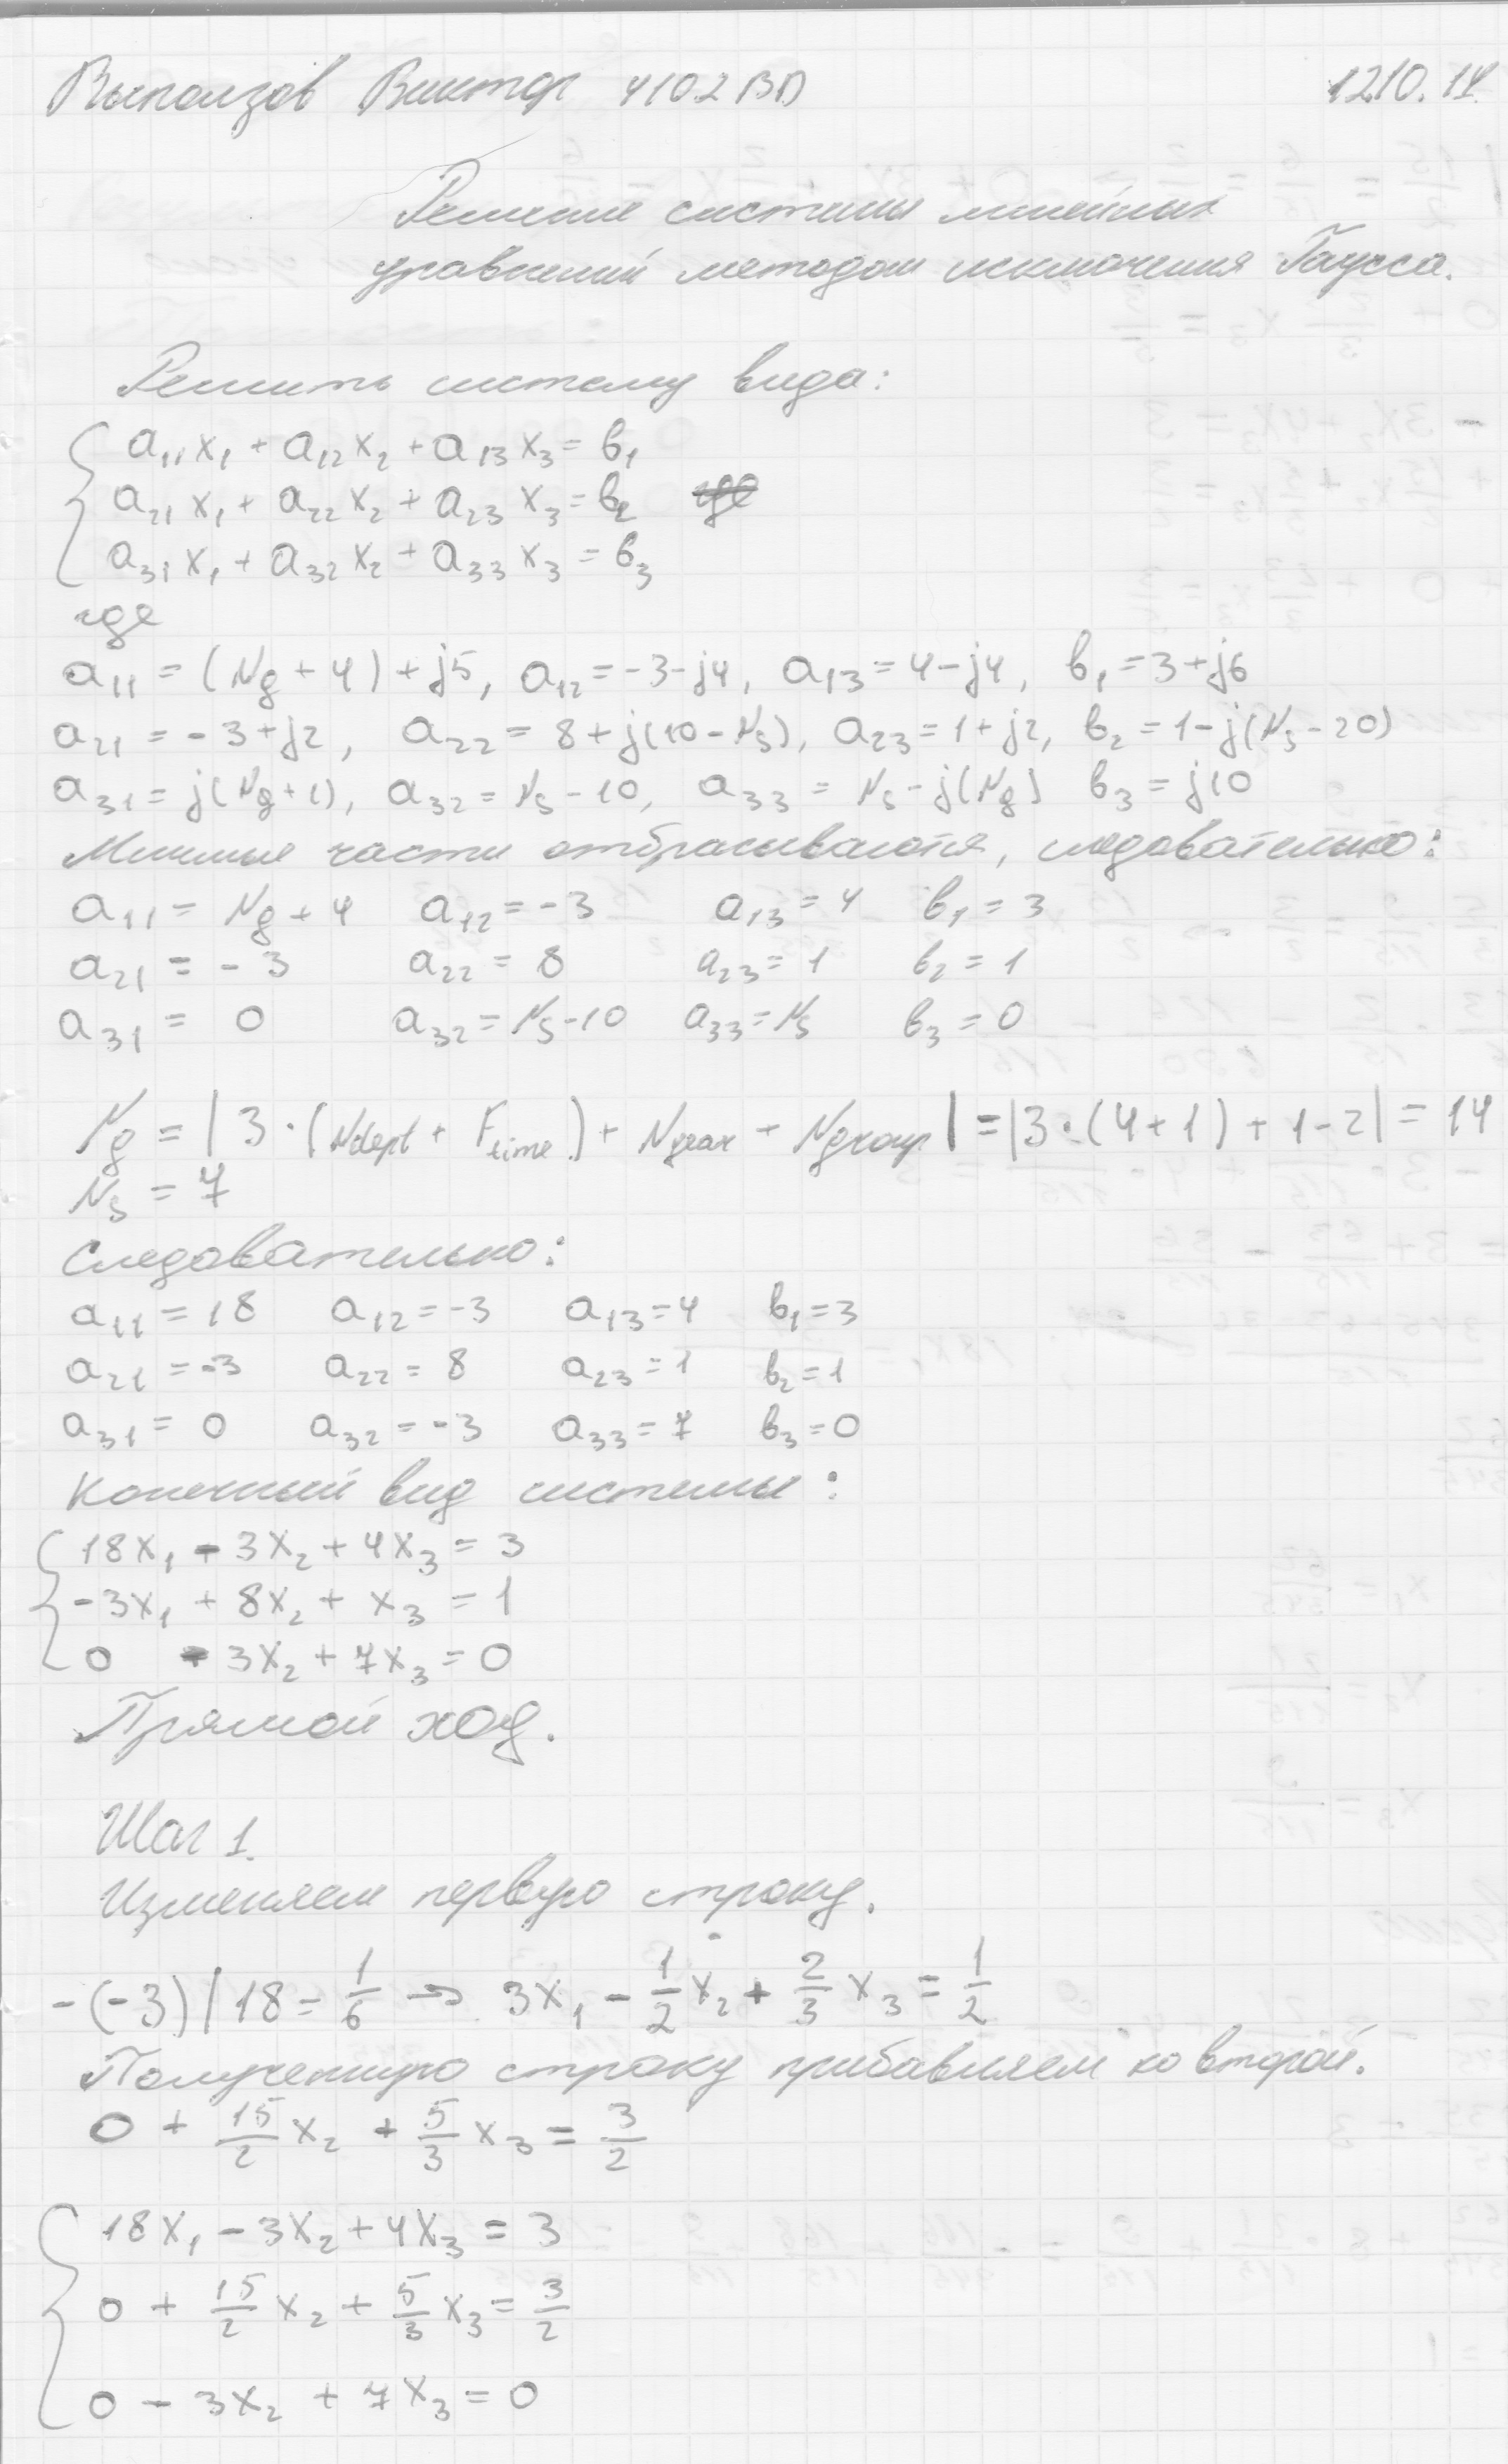 Выползов Виктор 4102ВД 12.10.14.
Решение системы линейных
уравнений методом исключения Гаусса.
Решить систему вида:
a₁₁x₁ + a₁₂x₂ + a₁₃x₃ = b₁
a₂₁x₁ + a₂₂x₂ + a₂₃x₃ = b₂
a₃₁x₁ + a₃₂x₂ + a₃₃x₃ = b₃
где
a₁₁ = (Ng + 4) + j5, a₁₂ = -3 - j4, a₁₃ = 4 - j4, b₁ = 3 + j6
a₂₁ = -3 + j2, a₂₂ = 8 + j(10 - Ns), a₂₃ = 1 + j2, b₂ = 1 - j(Ns - 20)
a₃₁ = j(Ng + 1), a₃₂ = Ns - 10, a₃₃ = Ns - j(Ng) b₃ = j10
Мнимые части отбрасываются, следовательно:
a₁₁ = Ng + 4 a₁₂ = -3 a₁₃ = 4 b₁ = 3
a₂₁ = -3 a₂₂ = 8 a₂₃ = 1 b₂ = 1
a₃₁ = 0 a₃₂ = Ns - 10 a₃₃ = Ns b₃ = 0
Ng = |3·(Ndept + Ftime) + Nyear - Ngroup| = |3·(4+1) + 1 - 2| = 14
Ns = 7
Следовательно:
a₁₁ = 18 a₁₂ = -3 a₁₃ = 4 b₁ = 3
a₂₁ = -3 a₂₂ = 8 a₂₃ = 1 b₂ = 1
a₃₁ = 0 a₃₂ = -3 a₃₃ = 7 b₃ = 0
Конечный вид системы:
18x₁ - 3x₂ + 4x₃ = 3
-3x₁ + 8x₂ + x₃ = 1
0 - 3x₂ + 7x₃ = 0
Прямой ход.
Шаг 1.
Изменяем первую строку.
-(-3)/18 = 1/6 → 3x₁ - 1/2 x₂ + 2/3 x₃ = 1/2
Полученную строку прибавляем ко второй.
0 + 15/2 x₂ + 5/3 x₃ = 3/2
18x₁ - 3x₂ + 4x₃ = 3
0 + 15/2 x₂ + 5/3 x₃ = 3/2
0 - 3x₂ + 7x₃ = 0